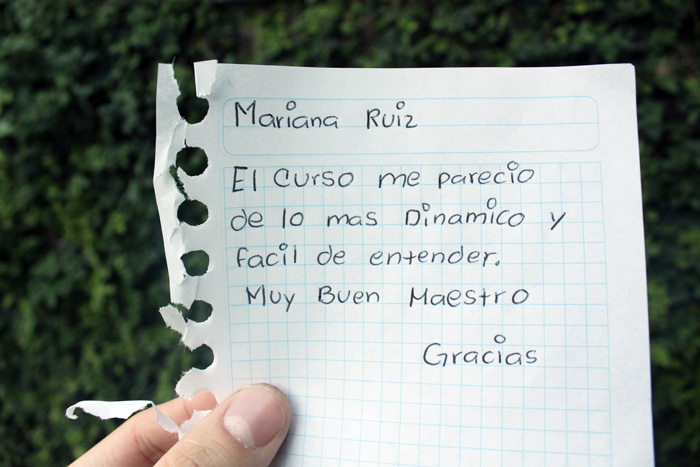 Mariana Ruiz
El Curso me parecio
de lo mas Dinamico y
facil de entender.
Muy Buen Maestro
Gracias